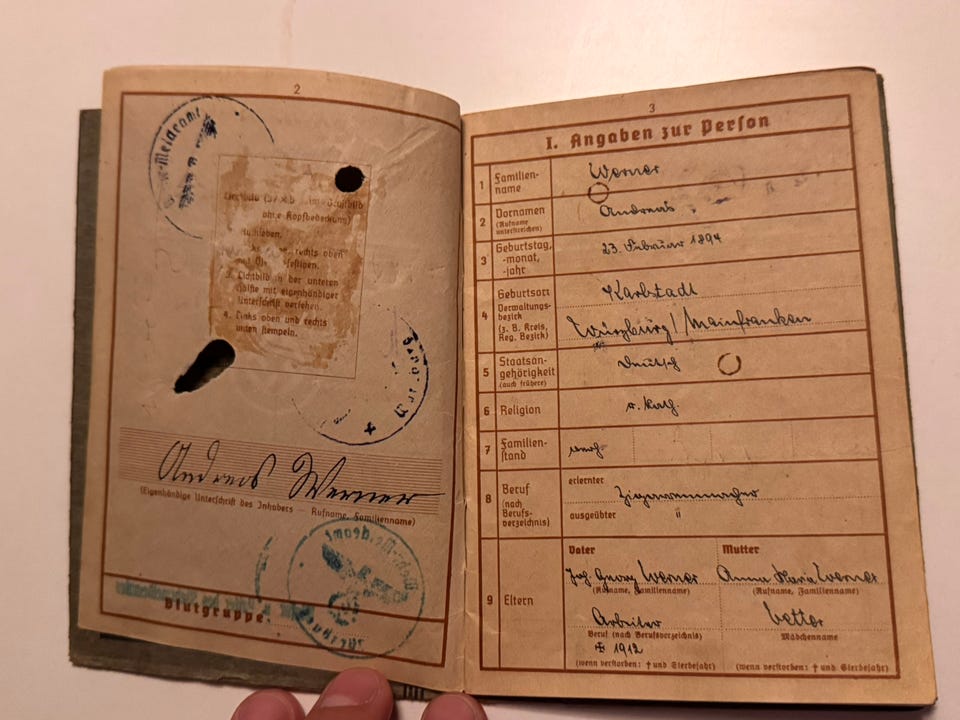 2
Lichtbild
ohne Kopfbedeckung)
rechts oben
Lichtbild in der unteren
Hälfte mit eigenhändiger
Unterschrift versehen.
4. Links oben und rechts
unten stempeln.
Andreas Werner
(Eigenhändige Unterschrift des Inhabers — Rufname, Familienname)
Blutgruppe:
3
I. Angaben zur Person
1 Familien-
name
Werner
2 Vornamen
(Rufname
unterstreichen)
Andreas
3 Geburtstag,
-monat,
-jahr
23. Februar 1894
4 Geburtsort
Verwaltungs-
bezirk
(z. B. Kreis,
Reg. Bezirk)
Karlstadt
Würzburg / Mainfranken
5 Staatsan-
gehörigkeit
(auch frühere)
Deutsch
6 Religion
r. kath.
7 Familien-
stand
verh.
8 Beruf
(nach
Berufs-
verzeichnis)
erlernter
Zigarrenmacher
ausgeübter "
9 Eltern
Vater Mutter
Joh. Georg Werner Anna Maria Werner
(Rufname, Familienname) (Rufname, Familienname)
Arbeiter Vetter
Beruf (nach Berufsverzeichnis) Mädchenname
✠ 1912
(wenn verstorben: † und Sterbejahr) (wenn verstorben: † und Sterbejahr)